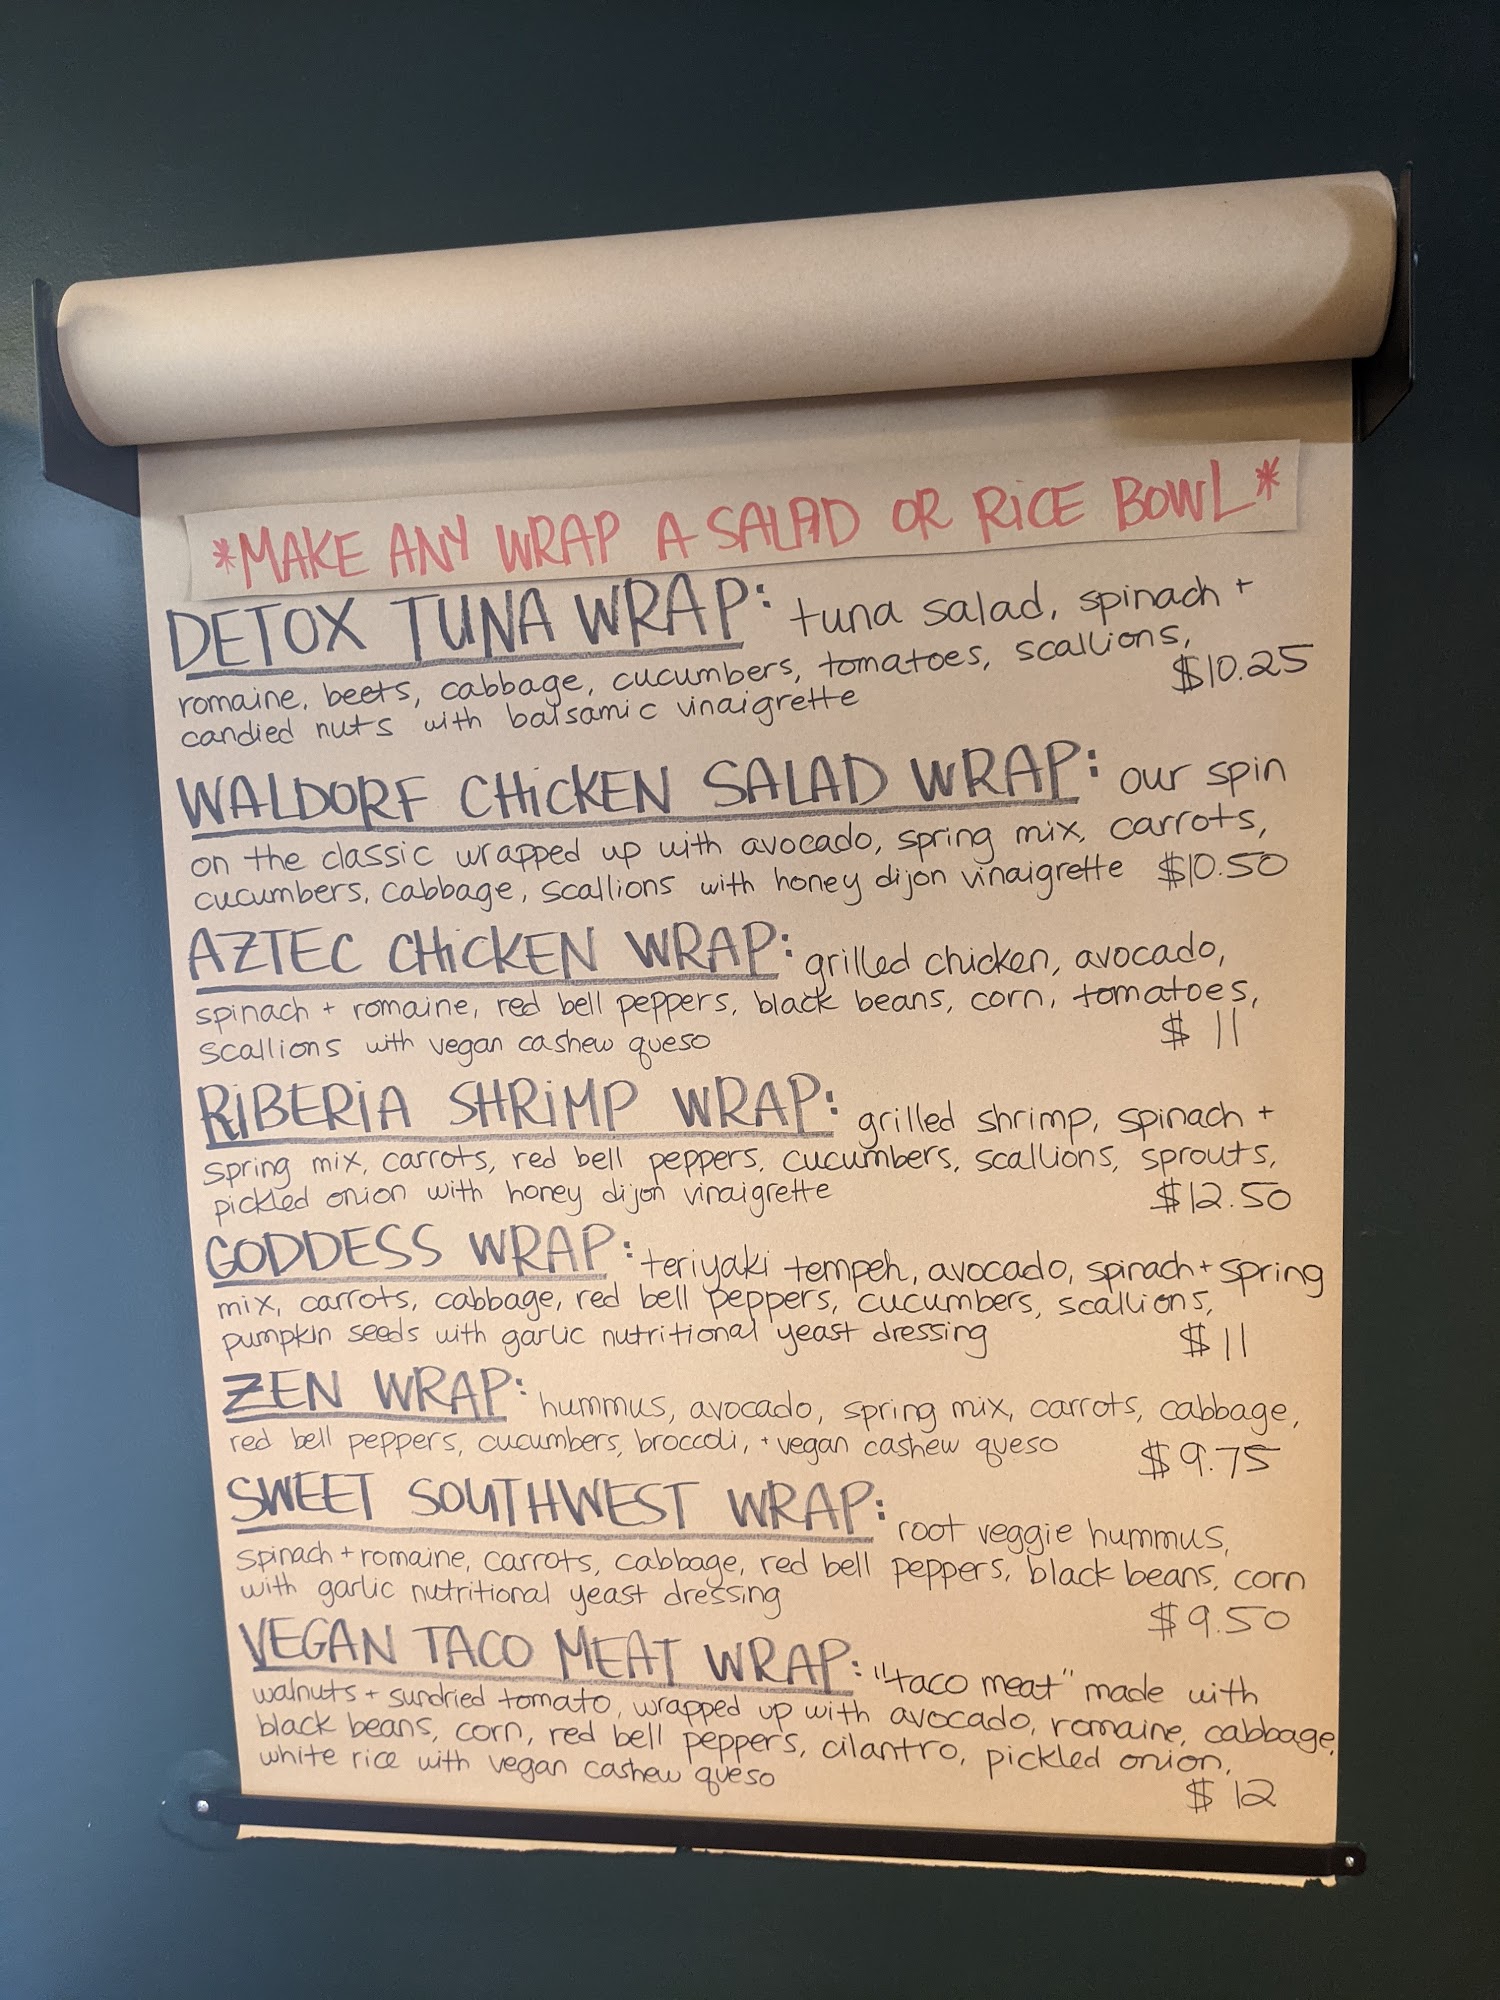 *MAKE ANY WRAP A SALAD OR RICE BOWL*
DETOX TUNA WRAP: tuna salad, spinach +
romaine, beets, cabbage, cucumbers, tomatoes, scallions,
candied nuts with balsamic vinaigrette $10.25
WALDORF CHICKEN SALAD WRAP: our spin
on the classic wrapped up with avocado, spring mix, carrots,
cucumbers, cabbage, scallions with honey dijon vinaigrette $10.50
AZTEC CHICKEN WRAP: grilled chicken, avocado,
spinach + romaine, red bell peppers, black beans, corn, tomatoes,
scallions with vegan cashew queso $ 11
RIBERIA SHRIMP WRAP: grilled shrimp, spinach +
spring mix, carrots, red bell peppers, cucumbers, scallions, sprouts,
pickled onion with honey dijon vinaigrette $12.50
GODDESS WRAP: teriyaki tempeh, avocado, spinach + spring
mix, carrots, cabbage, red bell peppers, cucumbers, scallions,
pumpkin seeds with garlic nutritional yeast dressing $ 11
ZEN WRAP: hummus, avocado, spring mix, carrots, cabbage,
red bell peppers, cucumbers, broccoli, + vegan cashew queso $ 9.75
SWEET SOUTHWEST WRAP: root veggie hummus,
spinach + romaine, carrots, cabbage, red bell peppers, black beans, corn
with garlic nutritional yeast dressing $ 9.50
VEGAN TACO MEAT WRAP: "taco meat" made with
walnuts + sundried tomato, wrapped up with avocado, romaine, cabbage,
black beans, corn, red bell peppers, cilantro, pickled onion,
white rice with vegan cashew queso $ 12